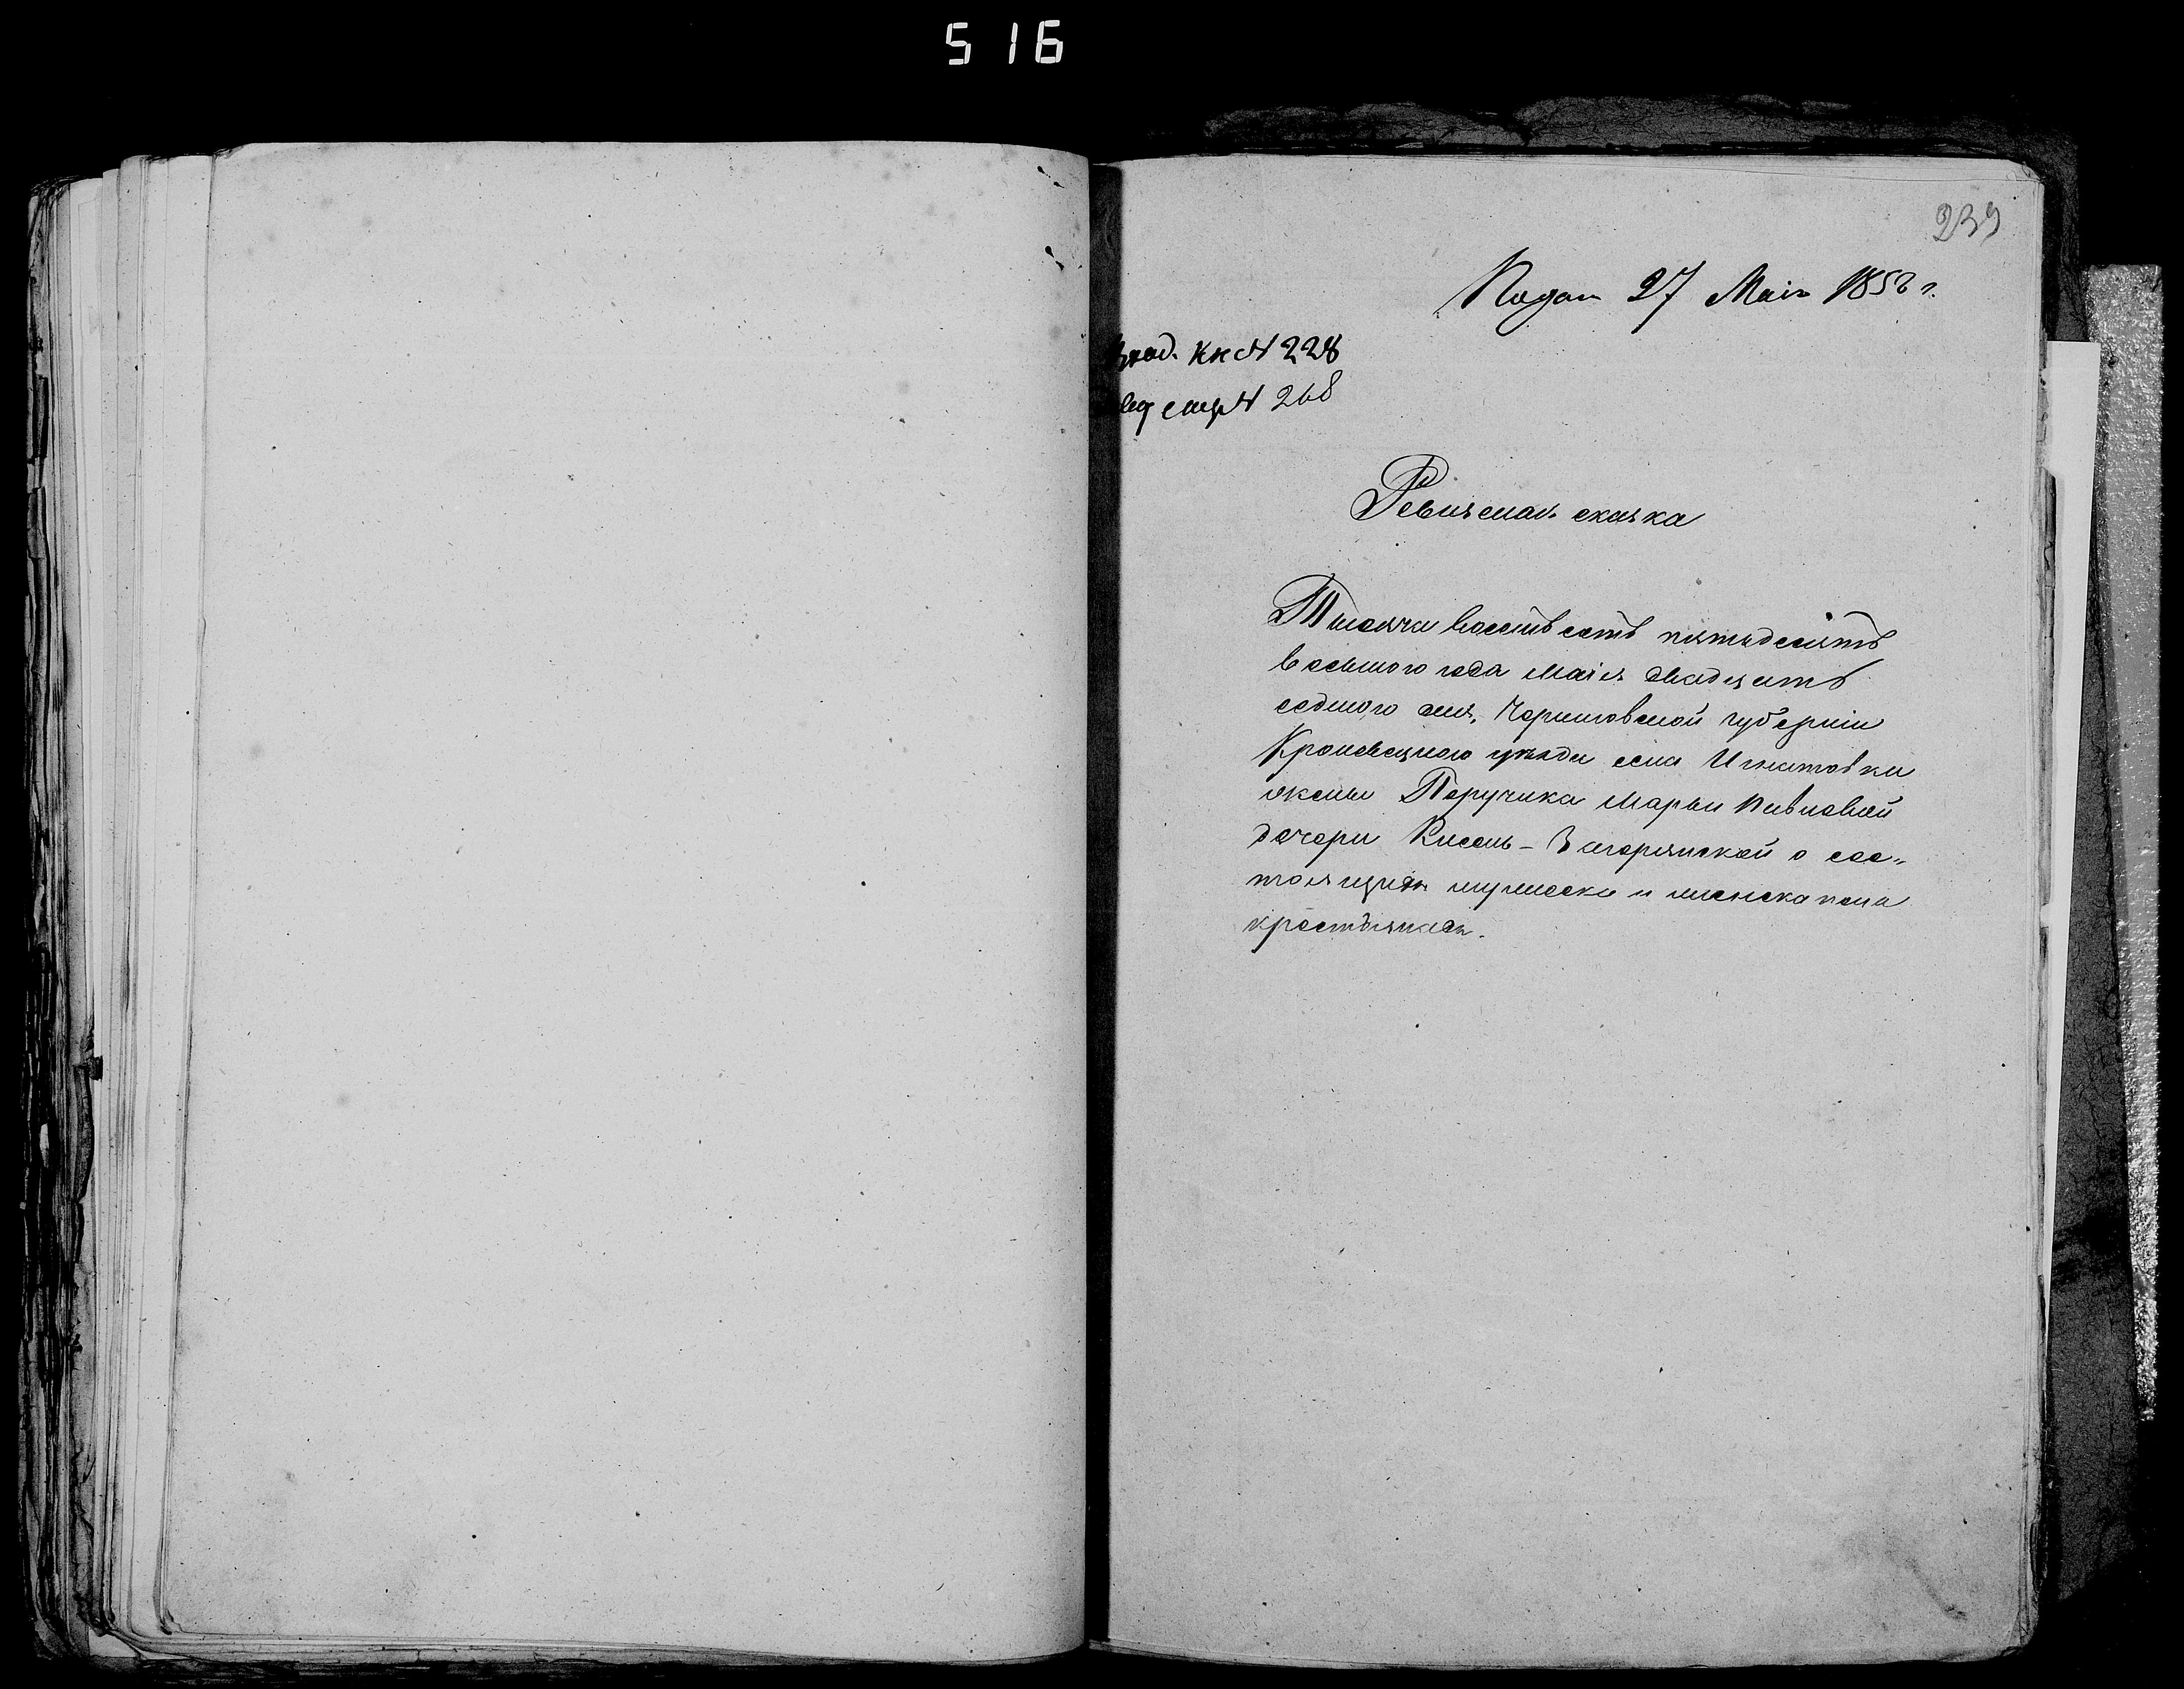 516
239
Подан 27 Маія 1858 г.
Вход. кн № 228
№ 268
Ревизская сказка
Тысяча восемьсотъ пятьдесятъ
восьмого года маія двадцать
седмого дня, Черниговской губерніи
Кролевецкого уезда села Игнатовки
жены Поручика Марьи Павловой
дочери Кисель-Загорянской о сос-
тоящихъ мужеска и женска пола
крестьянахъ.